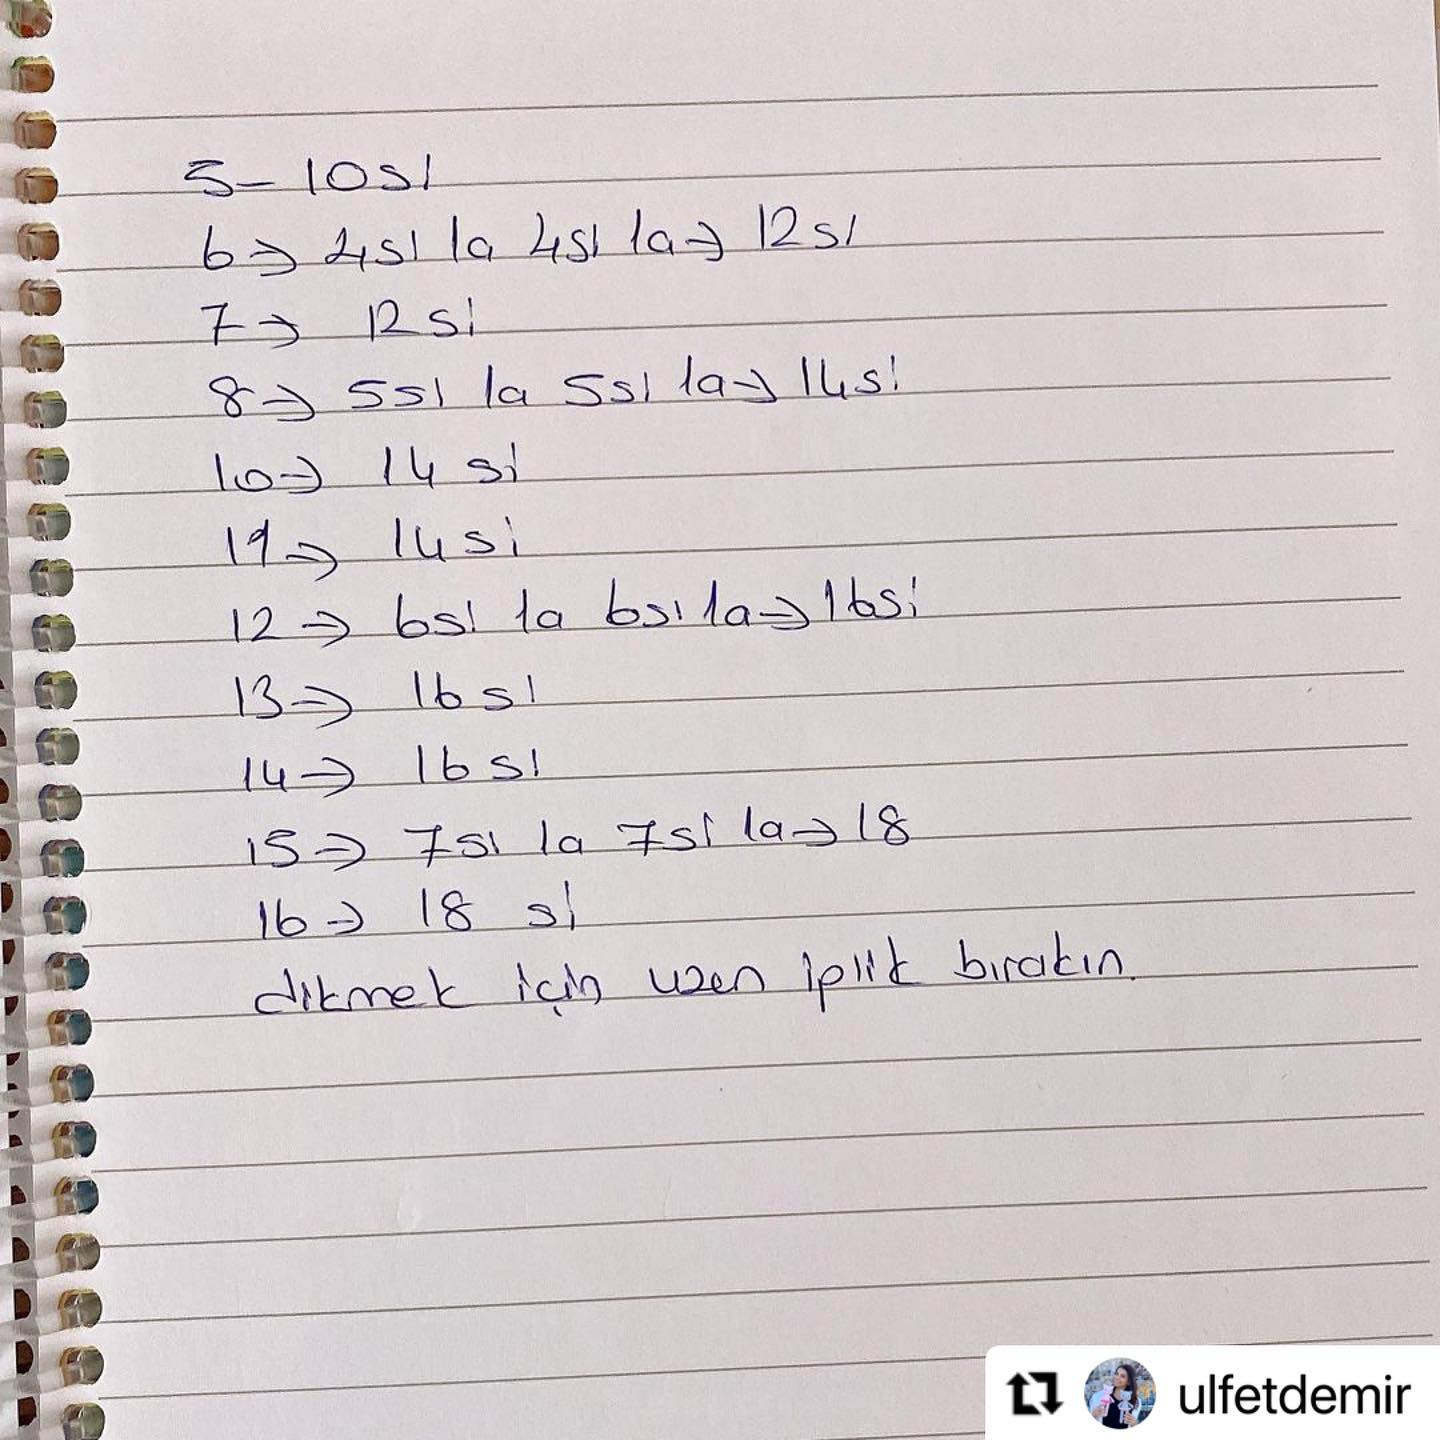 5- 10sı
6→ 4sı 1a 4sı 1a→ 12sı
7→ 12si
8→ 5sı 1a 5sı 1a→ 14si
10→ 14 si
11→ 14si
12→ 6sı 1a 6sı 1a→ 16si
13→ 16 sı
14→ 16 sı
15→ 7sı 1a 7si 1a→ 18
16→ 18 si
dikmek için uzen iplik bırakın.
ulfetdemir